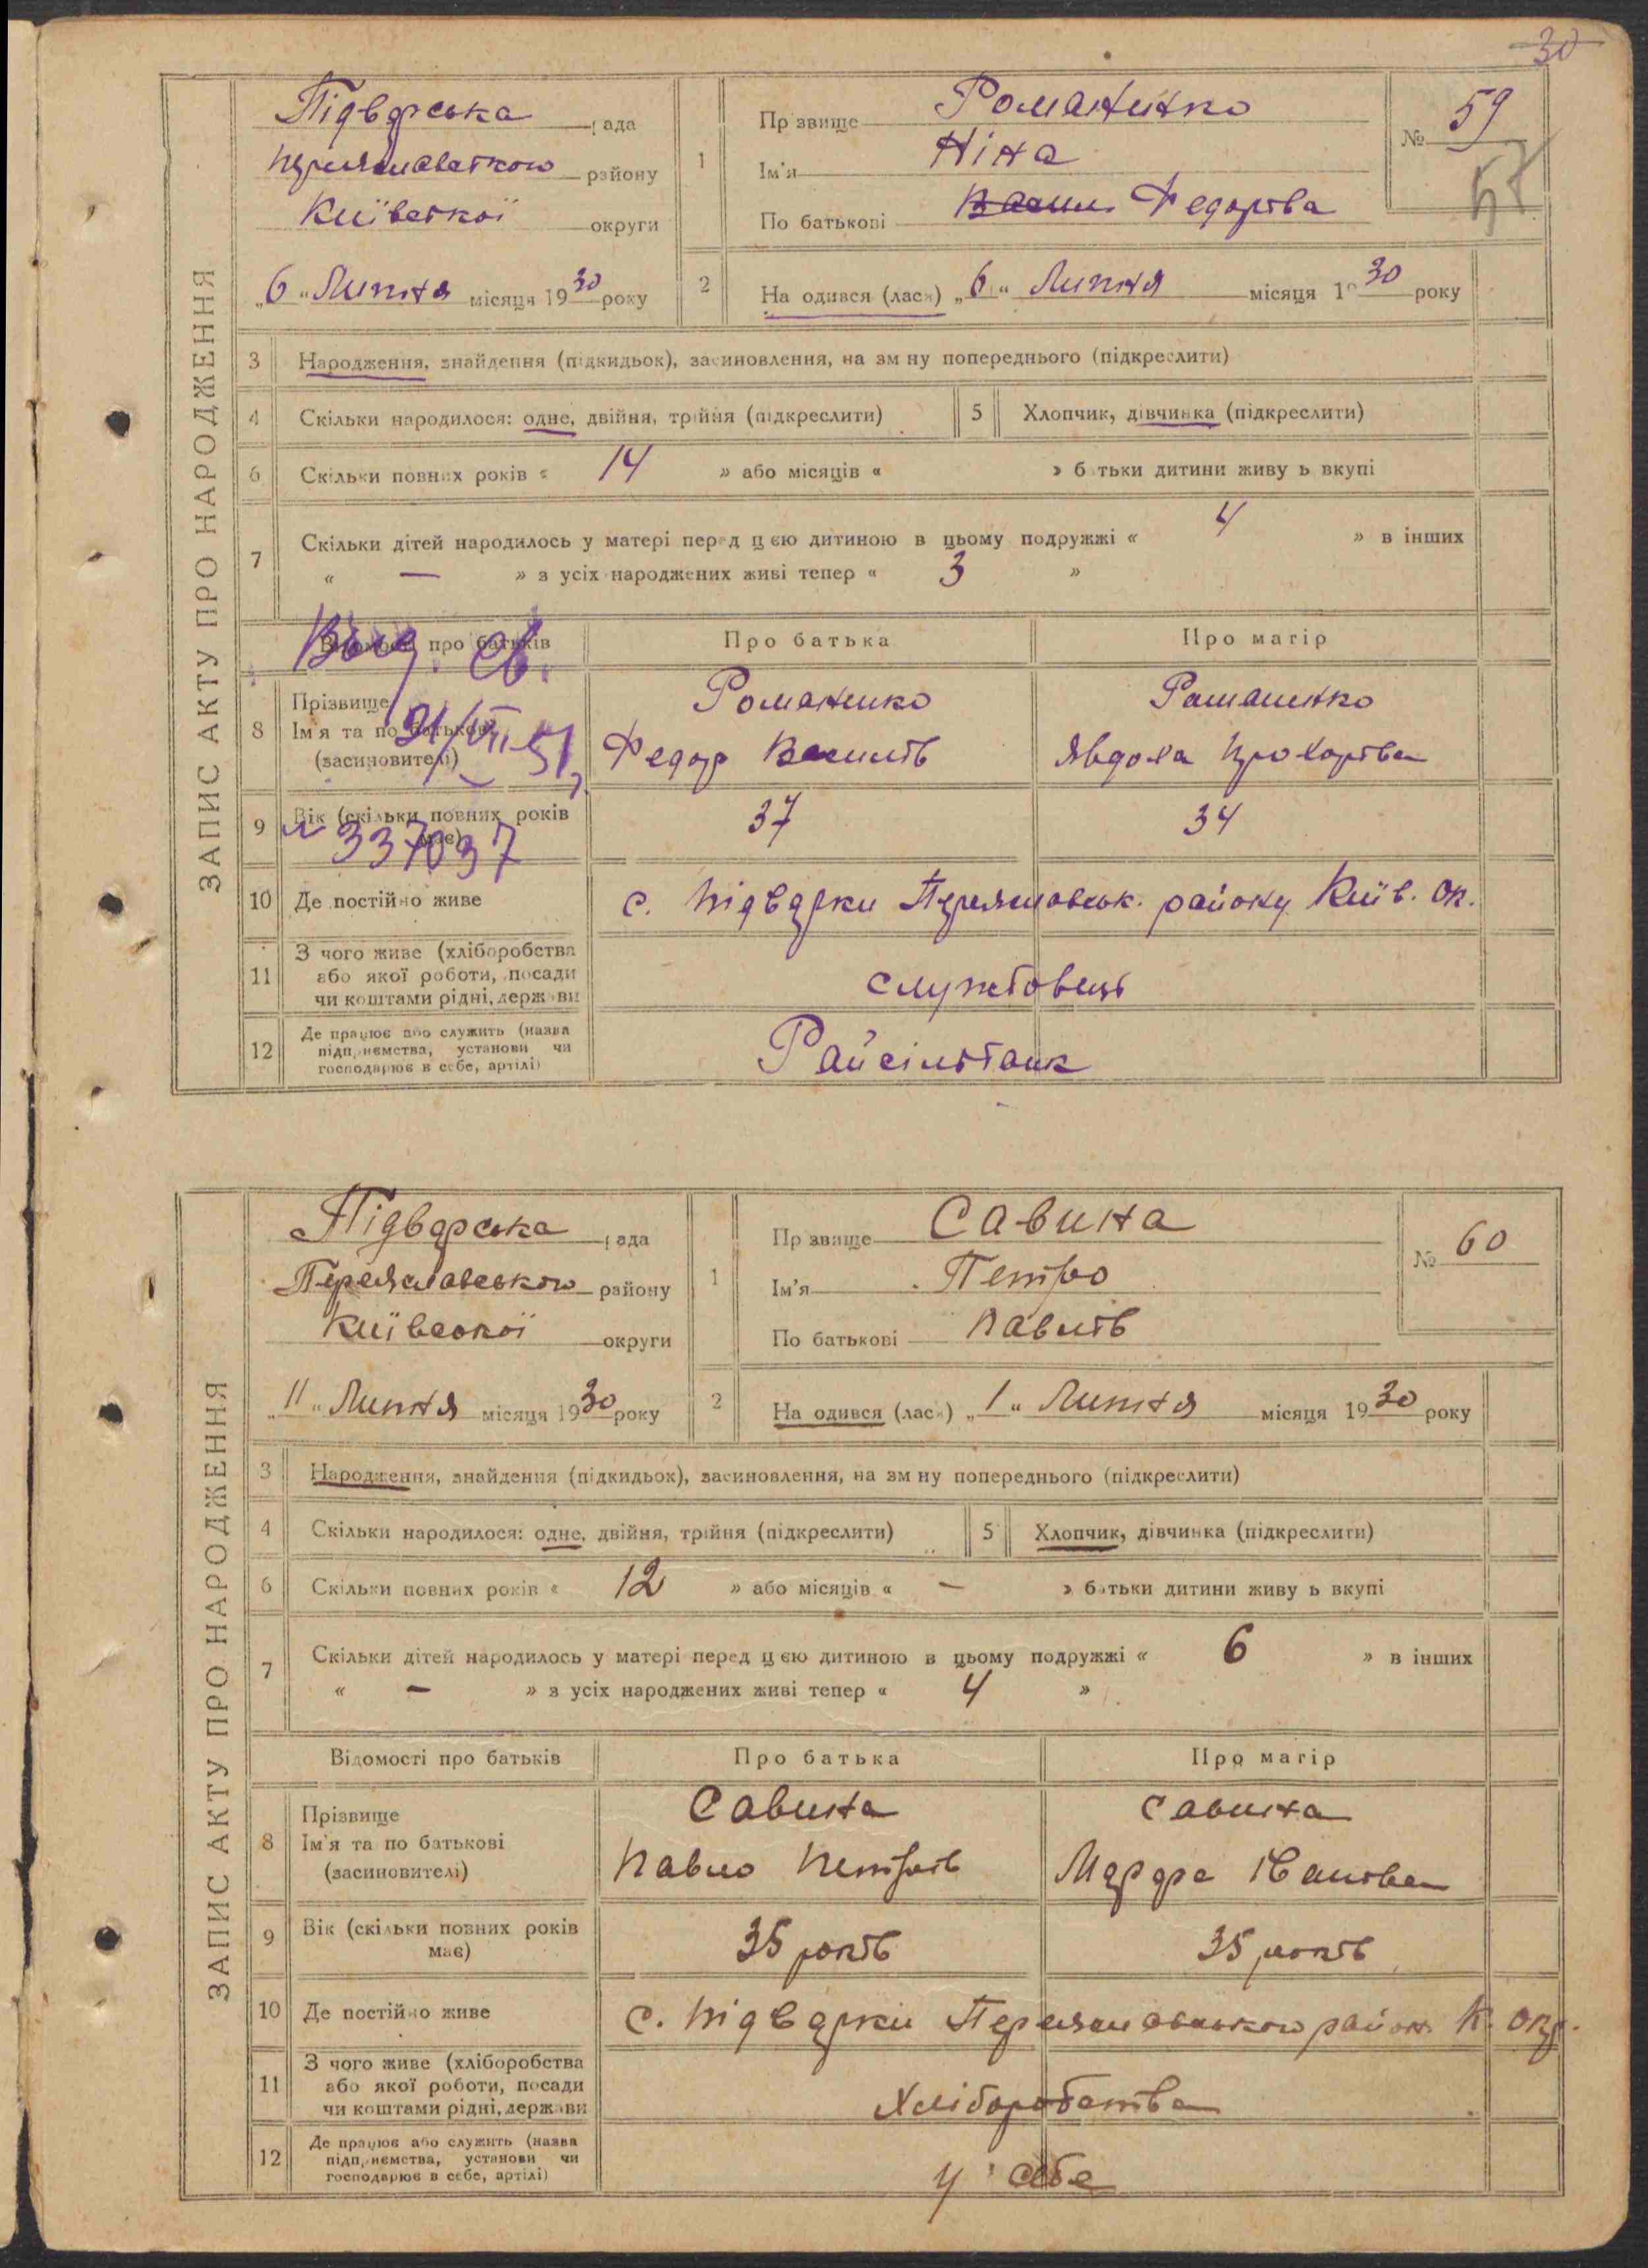 30
ЗАПИС АКТУ ПРО НАРОДЖЕННЯ
Підварська рада
Переяславського району
Київської округи
„6“ Липня місяця 1930 року
1
Прізвище Романенко
Ім'я Ніна
По батькові Васил Федорівна
№ 59
2
На одився (лася) „6“ Липня місяця 1930 року
3 Народження, знайдення (підкидьок), засиновлення, на зм ну попереднього (підкреслити)
4 Скільки народилося: одне, двійня, трійня (підкреслити)
5 Хлопчик, дівчинка (підкреслити)
6 Скільки повних років « 14 » або місяців « » батьки дитини живу ь вкупі
7 Скільки дітей народилось у матері перед цією дитиною в цьому подружжі « 4 » в інших
« — » з усіх народжених живі тепер « 3 »
Відомості про батьків Про батька Про матір
Выд. св.
21/VII-51
№ 337037
8 Прізвище
Ім'я та по батькові
(засиновителі)
Романенко
Федор Васильів
Романенко
Явдоха Прохорівна
9 Вік (скільки повних років має) 37 34
10 Де постійно живе с. Підварки Переяславськ. району Київ. Ок.
11 З чого живе (хліборобства
або якої роботи, посади
чи коштами рідні, держави
службовець
12 Де працює або служить (назва
підприємства, установи чи
господарює в себе, артілі)
Райсільбанк
ЗАПИС АКТУ ПРО НАРОДЖЕННЯ
Підварська рада
Переяславського району
Київської округи
„11“ Липня місяця 1930 року
1
Прізвище Савина
Ім'я Петро
По батькові Павлів
№ 60
2
На одився (лася) „1“ Липня місяця 1930 року
3 Народження, знайдення (підкидьок), засиновлення, на зм ну попереднього (підкреслити)
4 Скільки народилося: одне, двійня, трійня (підкреслити)
5 Хлопчик, дівчинка (підкреслити)
6 Скільки повних років « 12 » або місяців « — » батьки дитини живу ь вкупі
7 Скільки дітей народилось у матері перед цією дитиною в цьому подружжі « 6 » в інших
« — » з усіх народжених живі тепер « 4 »
Відомості про батьків Про батька Про матір
8 Прізвище
Ім'я та по батькові
(засиновителі)
Савина
Павло Петрів
Савина
Іванівна
9 Вік (скільки повних років
має)
35 років 35 років
10 Де постійно живе с. Підварки Переяславського район К. Окр.
11 З чого живе (хліборобства
або якої роботи, посади
чи коштами рідні, держави
Хліборобства
12 Де працює або служить (назва
підприємства, установи чи
господарює в себе, артілі)
у себе